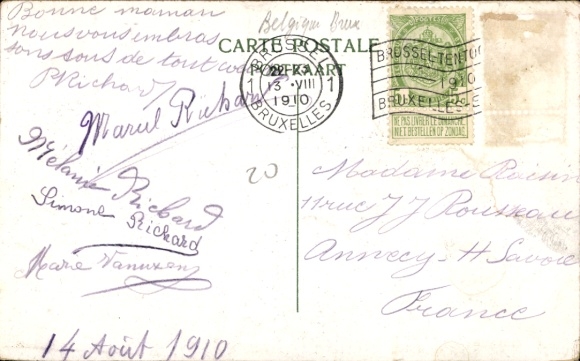 Bonne maman
nous vous embras
sons tous de tout coeur
P Richard
Marcel Richard
Mélanie Richard
Simone Richard
Marie
14 Août 1910
Belgique Brux
CARTE POSTALE
POSTKAART
BRUSSEL
1 13 VIII 1
1910
BRUXELLES
POSTES
BRUSSEL-TENTOO
1910
BRUXELLES-E
NE PAS LIVRER LE DIMANCHE
NIET BESTELLEN OP ZONDAG
20
Madame Roisin
11 rue J J Rousseau
Annecy - H Savoie
France